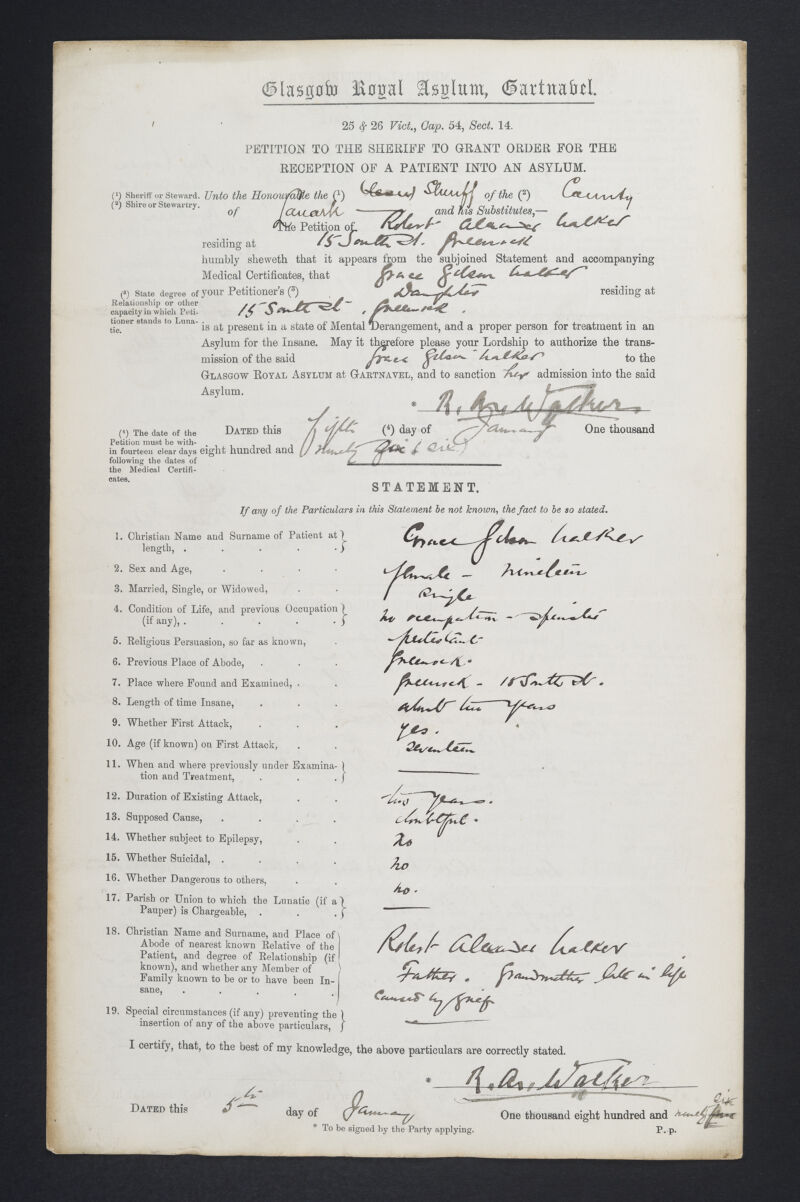 Glasgow Royal Asylum, Gartnavel.
25 & 26 Vict., Cap. 54, Sect. 14.
PETITION TO THE SHERIFF TO GRANT ORDER FOR THE
RECEPTION OF A PATIENT INTO AN ASYLUM.
(¹) Sheriff or Steward.
(²) Shire or Stewartry.
Unto the Honourable the (¹) Sheriff of the (²) County
of Lanark and his Substitutes,—
The Petition of Robert Alexander Walker
residing at 15 South St. Greenock
humbly sheweth that it appears from the subjoined Statement and accompanying
Medical Certificates, that Grace Gilson Walker
(³) State degree of
Relationship or other
capacity in which Peti-
tioner stands to Luna-
tic.
your Petitioner's (³) Daughter residing at
15 South St. Greenock.
is at present in a state of Mental Derangement, and a proper person for treatment in an
Asylum for the Insane. May it therefore please your Lordship to authorize the trans-
mission of the said Grace Gilson Walker to the
GLASGOW ROYAL ASYLUM at GARTNAVEL, and to sanction her admission into the said
Asylum.
* R. Alexr. Walker
(⁴) The date of the
Petition must be with-
in fourteen clear days
following the dates of
the Medical Certifi-
cates.
DATED this fifth (⁴) day of January One thousand
eight hundred and ninety six
STATEMENT.
If any of the Particulars in this Statement be not known, the fact to be so stated.
1. Christian Name and Surname of Patient at length, . . . . . Grace Gilson Walker
2. Sex and Age, . . . . female - nineteen
3. Married, Single, or Widowed, . . single
4. Condition of Life, and previous Occupation (if any), . . . . . no occupation - spinster
5. Religious Persuasion, so far as known, . protestant
6. Previous Place of Abode, . . . Greenock.
7. Place where Found and Examined, . . Greenock - 15 South St.
8. Length of time Insane, . . . about two years
9. Whether First Attack, . . . yes.
10. Age (if known) on First Attack, . . seventeen
11. When and where previously under Examina-
tion and Treatment, . . . . ——
12. Duration of Existing Attack, . . two years.
13. Supposed Cause, . . . . doubtful.
14. Whether subject to Epilepsy, . . No
15. Whether Suicidal, . . . . no
16. Whether Dangerous to others, . . no.
17. Parish or Union to which the Lunatic (if a
Pauper) is Chargeable, . . . ——
18. Christian Name and Surname, and Place of
Abode of nearest known Relative of the
Patient, and degree of Relationship (if
known), and whether any Member of
Family known to be or to have been In-
sane, . . . . .
Robert Alexander Walker
Father. Grandmother late in life
caused by grief
19. Special circumstances (if any) preventing the
insertion of any of the above particulars, ——
I certify, that, to the best of my knowledge, the above particulars are correctly stated.
* R. Alexr. Walker
DATED this 5th day of January One thousand eight hundred and ninety six
* To be signed by the Party applying.
P. p.